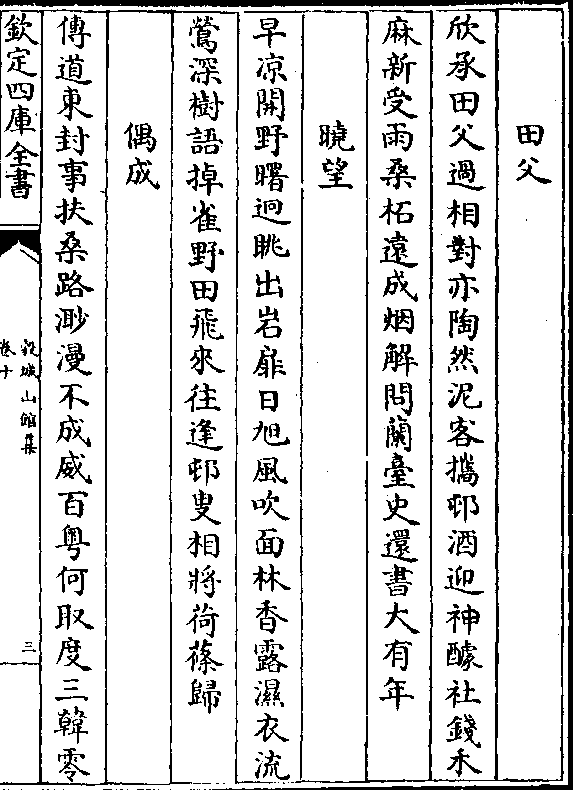 田父
欣承田父過相對亦陶然泥客攜邨酒迎神醵社錢禾
麻新受雨桑柘遠成烟解問蘭臺史還書大有年
曉望
早凉開野曙迥眺出岩扉日旭風吹面林香露濕衣流
鶯深樹語掉雀野田飛來往逢邨叟相將荷蓧歸
偶成
傳道東封事扶桑路渺漫不成威百粤何取度三韓零
欽定四庫全書
穀城山館集
卷十
三